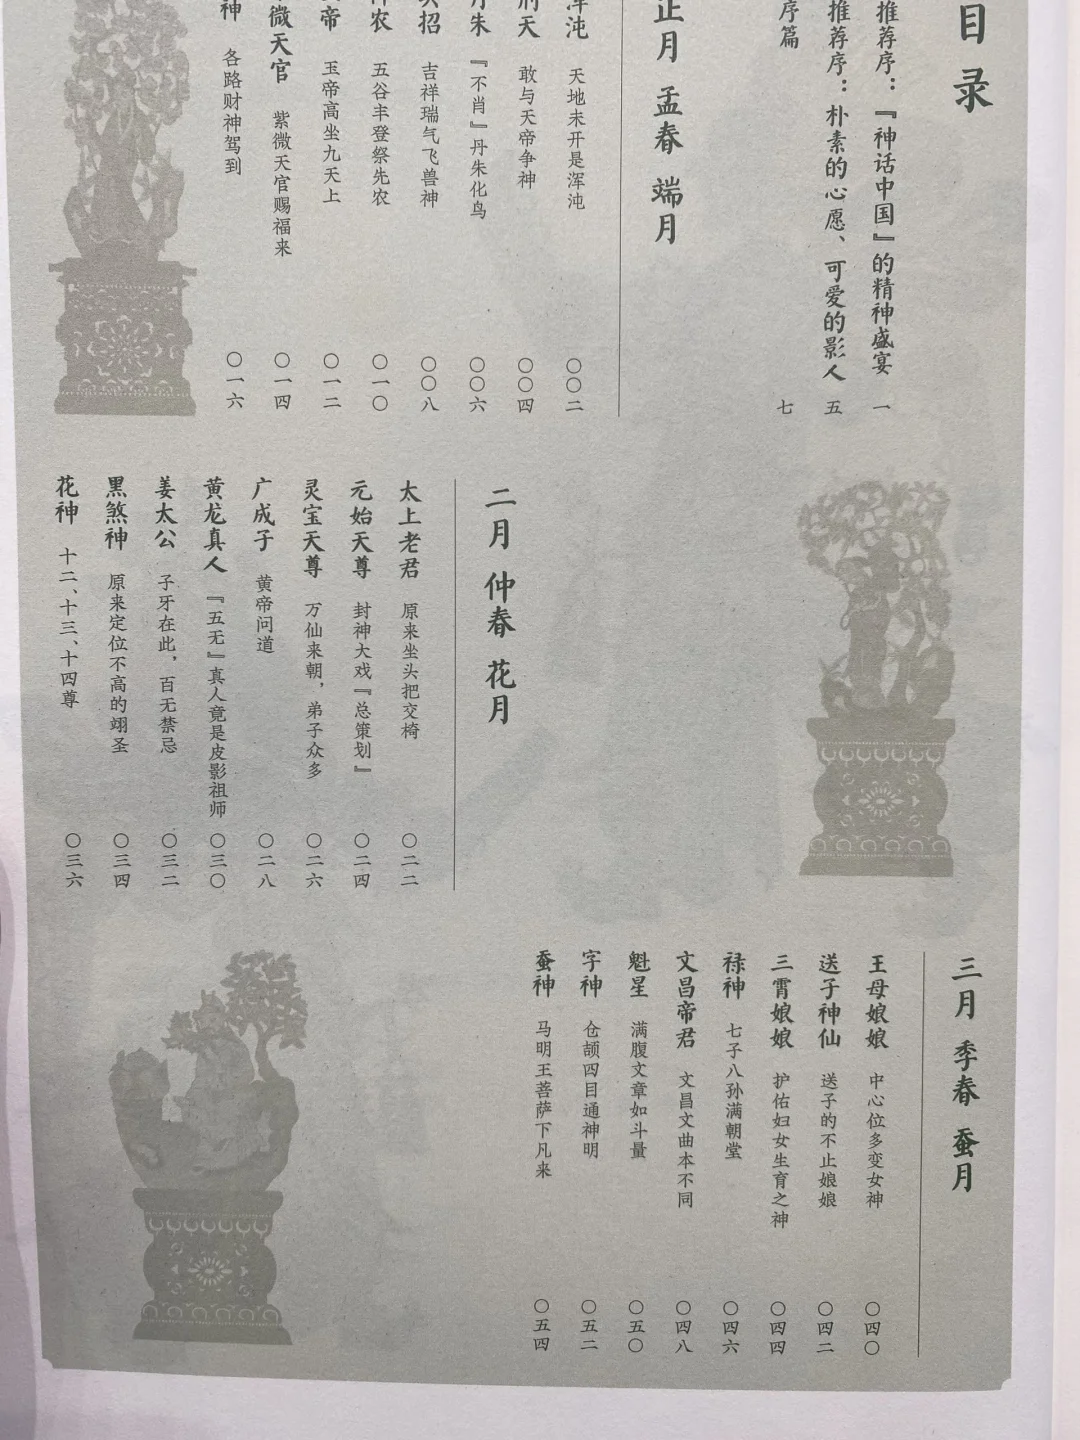 目录
推荐序：『神话中国』的精神盛宴 一
推荐序：朴素的心愿、可爱的影人 五
序篇 七
正月 孟春 端月
浑沌 天地未开是浑沌 〇〇二
刑天 敢与天帝争神 〇〇四
丹朱 『不肖』丹朱化鸟 〇〇六
招 吉祥瑞气飞兽神 〇〇八
农 五谷丰登祭先农 〇一〇
帝 玉帝高坐九天上 〇一二
微天官 紫微天官赐福来 〇一四
神 各路财神驾到 〇一六
二月 仲春 花月
太上老君 原来坐头把交椅 〇二二
元始天尊 封神大戏『总策划』 〇二四
灵宝天尊 万仙来朝，弟子众多 〇二六
广成子 黄帝问道 〇二八
黄龙真人 『五无』真人竟是皮影祖师 〇三〇
姜太公 子牙在此，百无禁忌 〇三二
黑煞神 原来定位不高的翊圣 〇三四
花神 十二、十三、十四尊 〇三六
三月 季春 蚕月
王母娘娘 中心位多变女神 〇四〇
送子神仙 送子的不止娘娘 〇四二
三霄娘娘 护佑妇女生育之神 〇四四
禄神 七子八孙满朝堂 〇四六
文昌帝君 文昌文曲本不同 〇四八
魁星 满腹文章如斗量 〇五〇
字神 仓颉四目通神明 〇五二
蚕神 马明王菩萨下凡来 〇五四